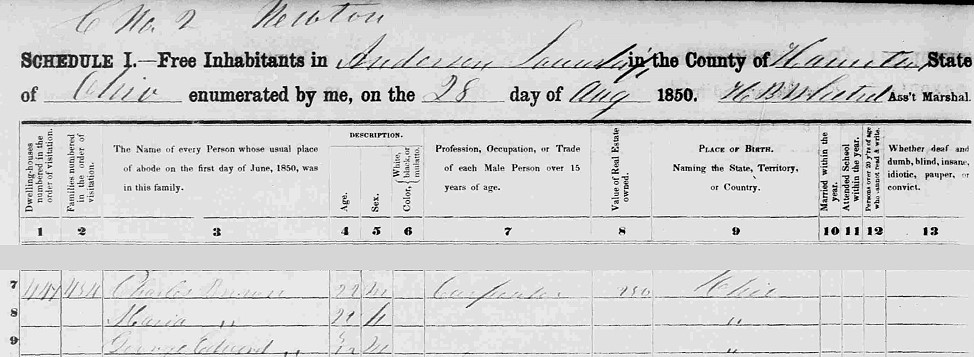 C No. 2 Newton
SCHEDULE I.—Free Inhabitants in Anderson Township in the County of Hamilton State
of Ohio enumerated by me, on the 28 day of Aug 1850. Ass't Marshal.
DESCRIPTION.
Dwelling-houses numbered in the order of visitation.
Families numbered in the order of visitation.
The Name of every Person whose usual place of abode on the first day of June, 1850, was in this family.
Age.
Sex.
Color, { White, black, or mulatto.
Profession, Occupation, or Trade of each Male Person over 15 years of age.
Value of Real Estate owned.
PLACE OF BIRTH. Naming the State, Territory, or Country.
Married within the year.
Attended School within the year.
Persons over 20 y'rs of age who cannot read & write.
Whether deaf and dumb, blind, insane, idiotic, pauper, or convict.
1 2 3 4 5 6 7 8 9 10 11 12 13
7 Charles M Carpenter Ohio
8 Maria " "
9 George Edward " M "